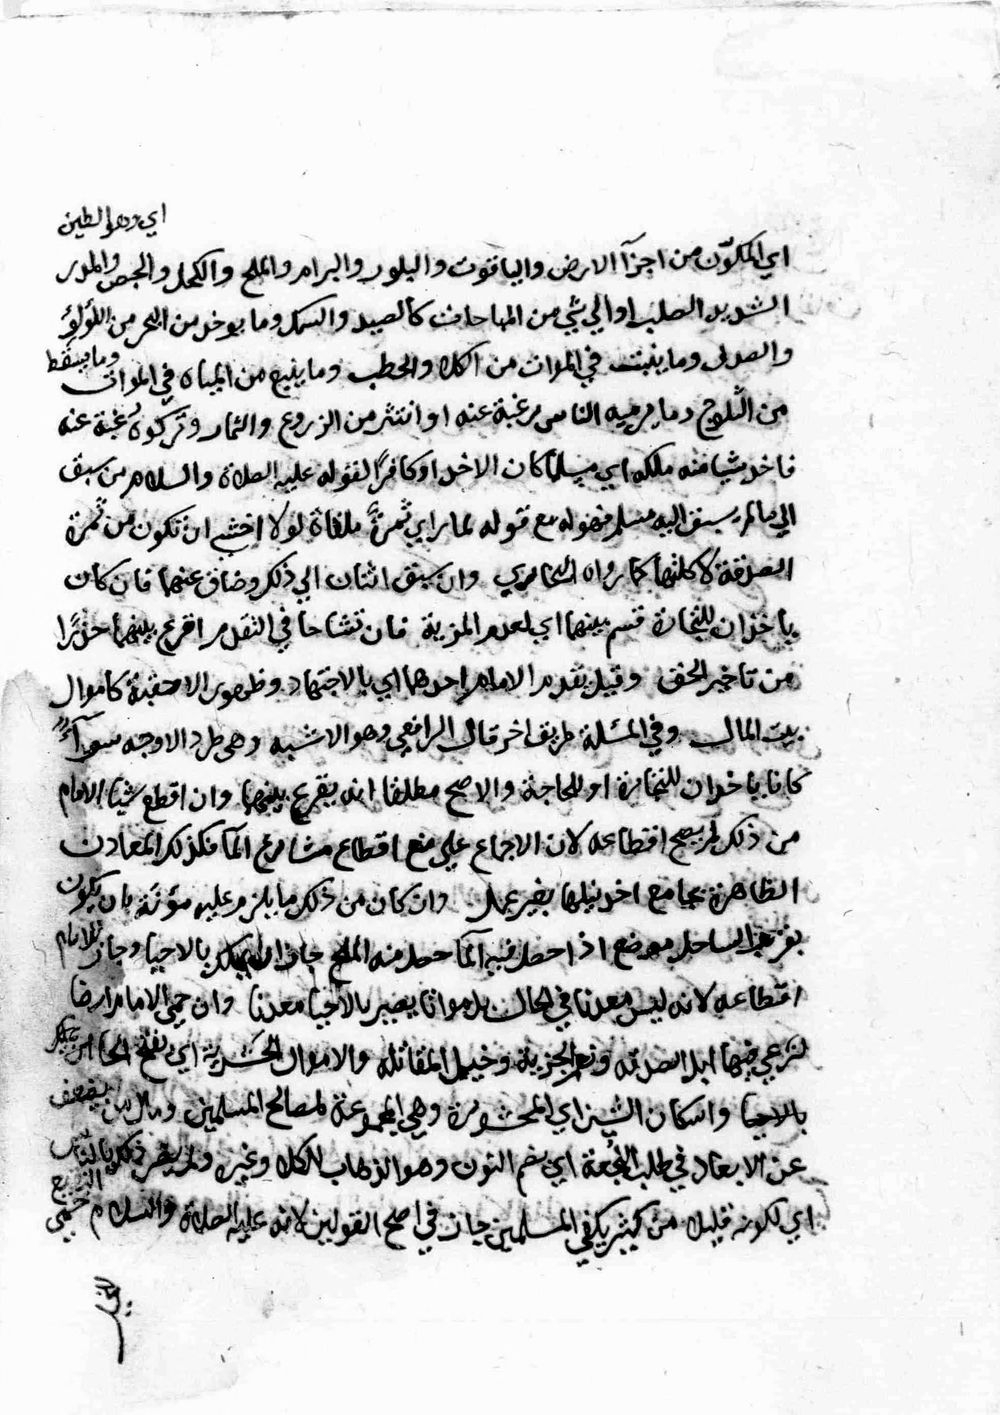 اي وهو الطين
اي المكوّن من اجزآ الارض والياقوت والبلور والبرام والملح والكحل والجص والمدر
الشديد الصلب او الي شي من المباحات كالصيد والسمك وما يوخذ من البحر من اللؤلؤ
والصدف وما ينبت في الموات من الكلا والحطب وما ينبع من المياه في الموات وما يسقط
من الثلوج وما يرميه الناس رغبة عنه او انتثر من الزروع والثمار وتركوه رغبة عنه
فاخذ شيا منه ملكه اي مسلما كان الاخذ او كافرًا لقوله عليه الصلاة والسلام من سبق
الي ما لم يسبق اليه مسلم فهو له مع قوله لما راي ثمرةً ملقاة لولا اخشي ان تكون من ثمرة
الصدقة لاكلتها كما رواه البخاري وان سبق اثنان الي ذلك وضاق عنهما فان كان
ياخذان للتجارة قسم بينهما اي لعدم المزية فان تشاحا في التقدم اقرع بينهما حذرًا
من تاخير الحق وقيل يقدم الامام احدهما اي بالاجتهاد وظهور الاحقية كاموال
بيت المال وفي المسئلة طريق اخر قال الرافعي وهو الاشبه وهي طرد الاوجه سوآءً
كانا ياخذان للتجارة او للحاجة والاصح مطلقا انه يقرع بينهما وان اقطع شيا الامام
من ذلك لم يصح اقطاعه لان الاجماع علي منع اقطاع مشارع المآ فكذلك المعادن
الظاهرة بجامع اخذ نيلها بغير عمل وان كان من ذلك ما يلزم عليه مؤنة بان يكون
بقرب الساحل موضع اذا حصل فيه المآ حصل منه الملح جاز ان يملك بالاحيا وجاز للامام
اقطاعه لانه ليس معدنا في الحال بل مواتا يصير بالاحيا معدنا وان حمي الامام ارضا
لترعي فيها ابل الصدقة ونعم الجزية وخيل المقاتلة والاموال الحشرية اي بفتح الحا
بالاحيا واسكان الشين اي المحشورة وهي المجموعة لمصالح المسلمين ومال من يضعف
عن الابعاد في طلب النُّجعة اي بضم النون وهو الذهاب للكلا وغيره ولم يضر ذلك بالناس
اي لكونه قليلا من كثير يكفي المسلمين جاز في اصح القولين لانه عليه الصلاة والسلام حمي
النقيع